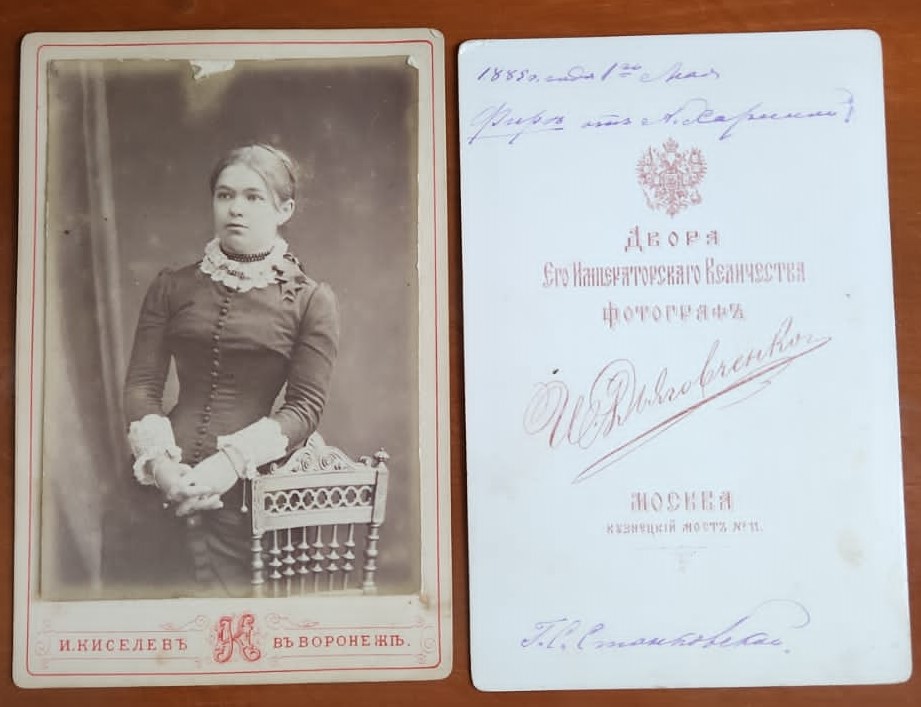 И. КИСЕЛЕВЪ К ВЪ ВОРОНЕЖѢ.
года 1го Мая
отъ А.
ДВОРА
ЕГО ИМПЕРАТОРСКАГО ВЕЛИЧЕСТВА
ФОТОГРАФЪ
И. Дьяговченко.
МОСКВА
КУЗНЕЦКІЙ МОСТЪ № 11.
Г. С. Станковской.